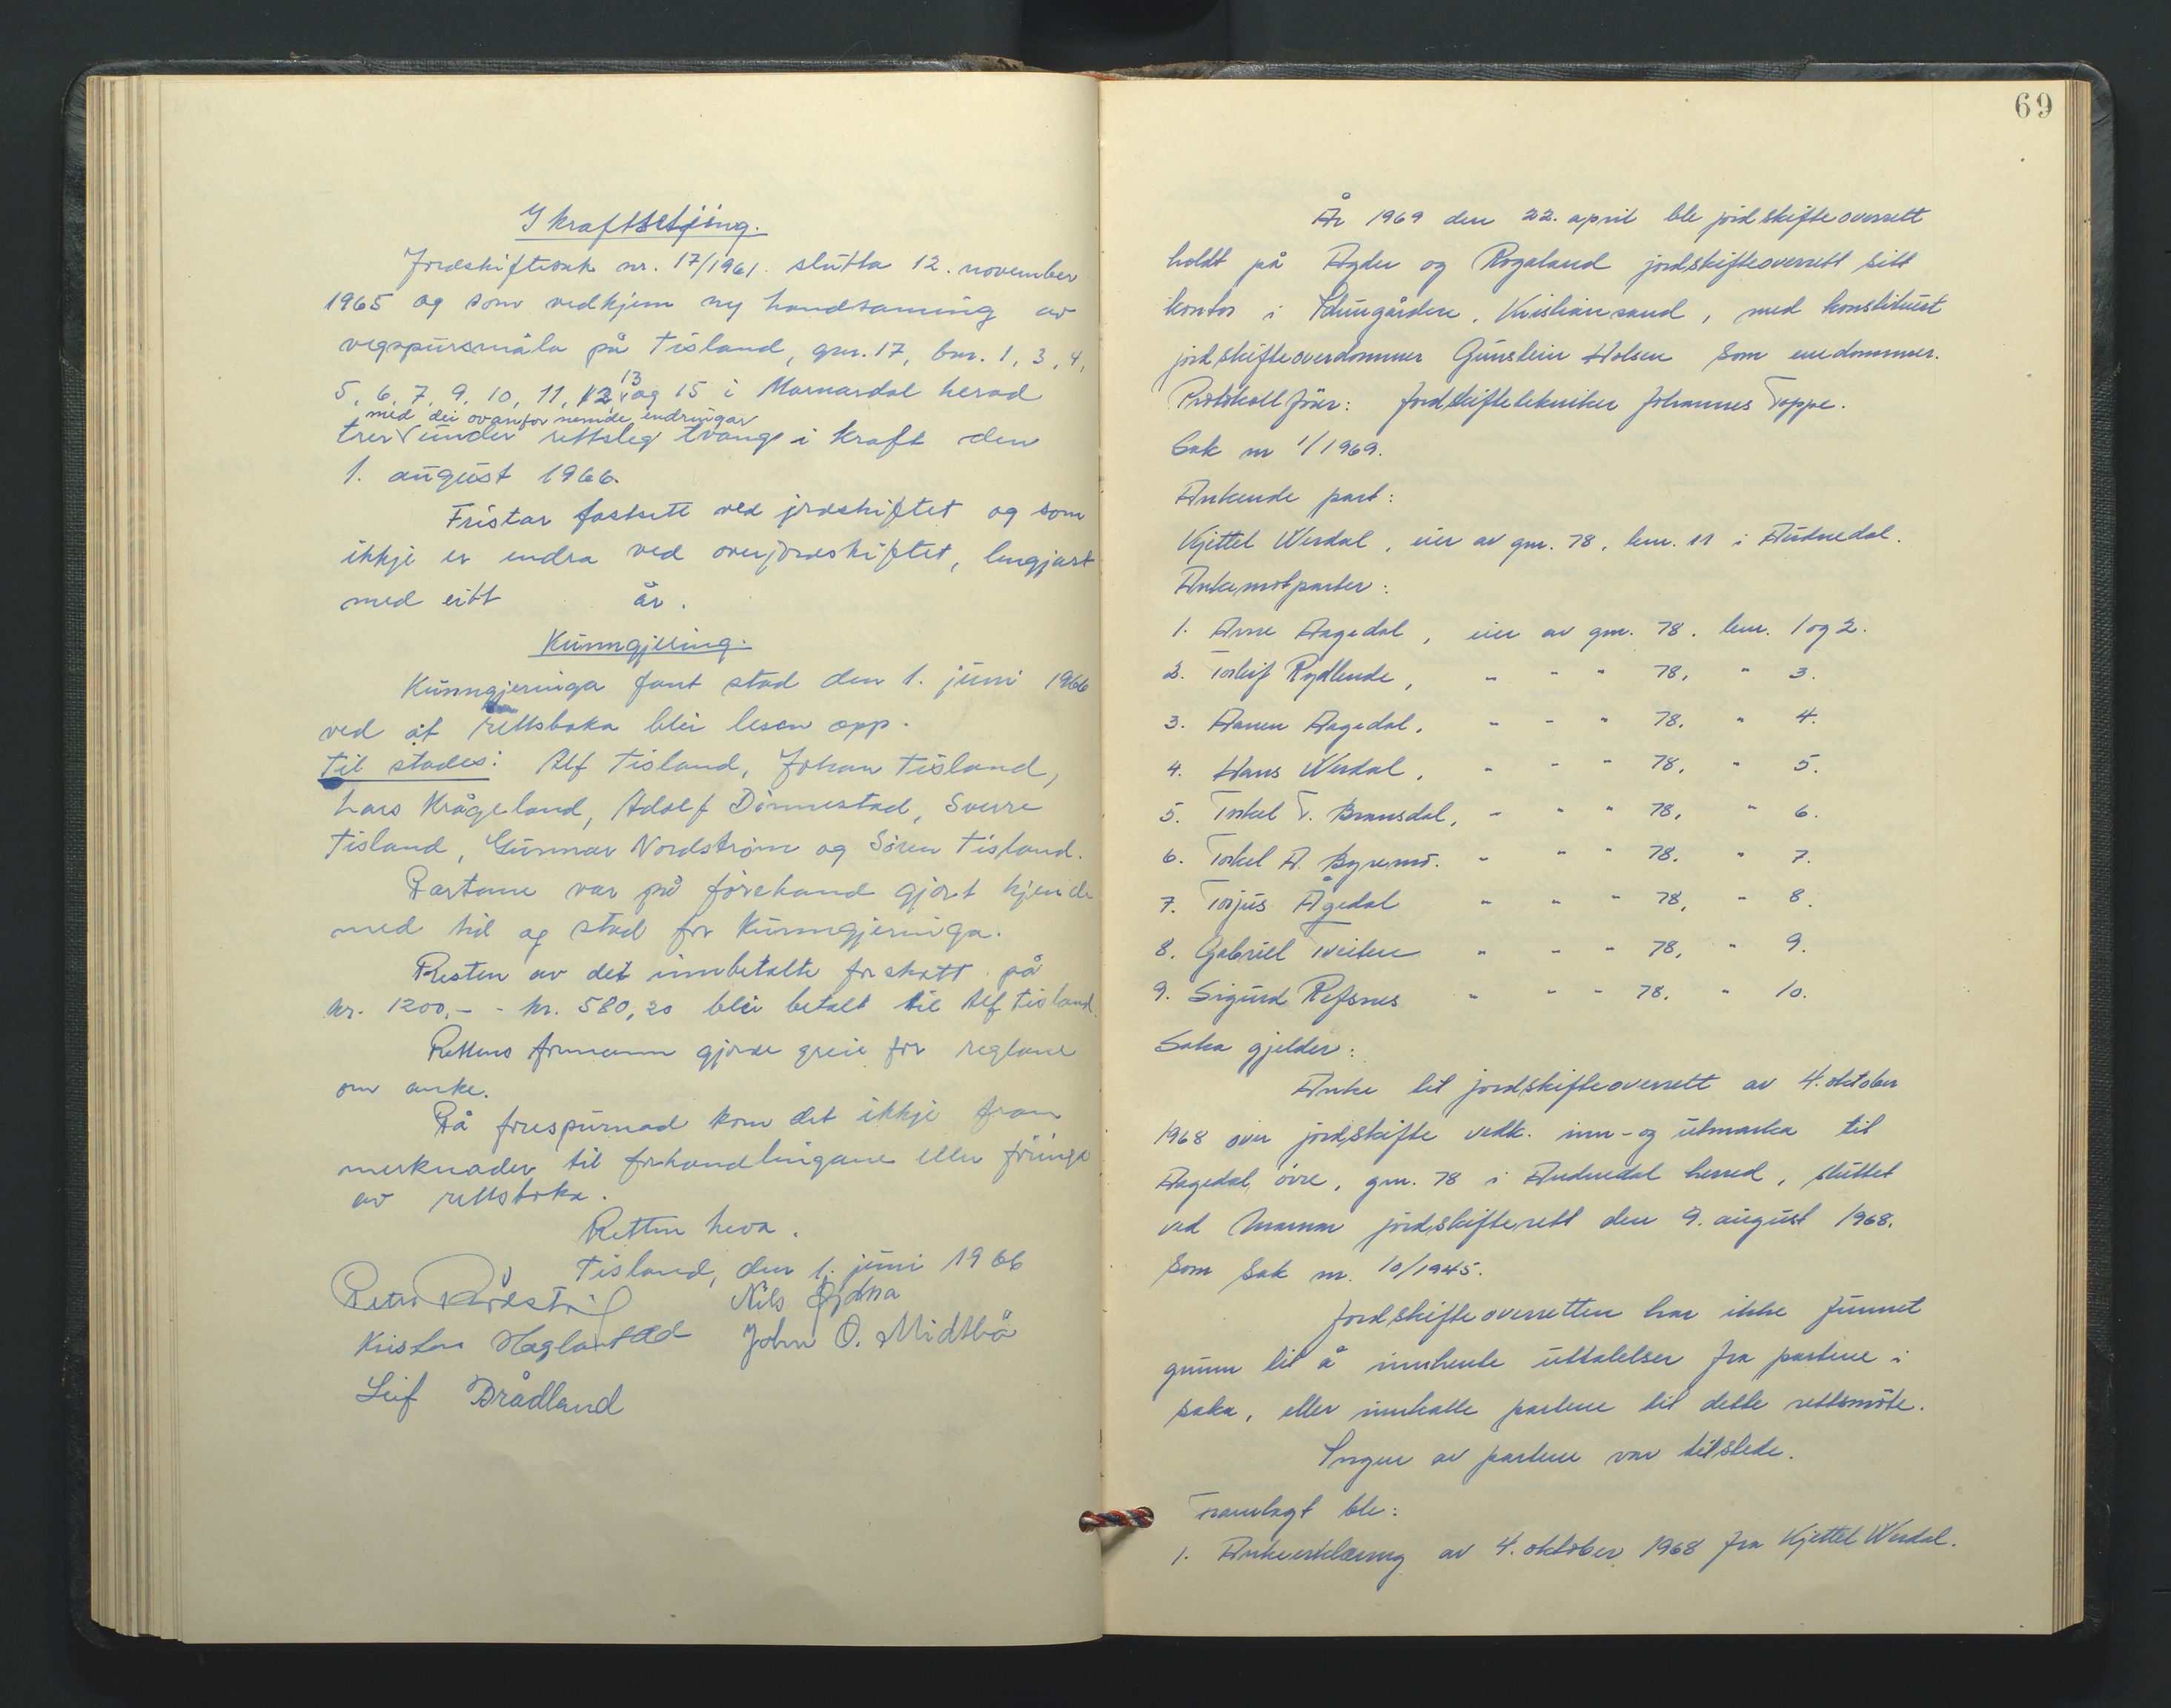 Ikraftsetjing.
Jordskiftesak nr. 17/1961. slutta 12. november
1965 og som vedkjem ny handsaming av
vegspursmåla på Tisland, gnr. 17, bnr. 1, 3, 4,
5, 6, 7, 9, 10, 11, 12, 13 og 15 i Marnardal herad
med dei ovanfor nemde endringar
trer under rettsleg tvang i kraft den
1. august 1966.
Fristar fastsett ved jordskiftet og som
ikkje er endra ved overjordskiftet, lengjast
med eitt år.
Kunngjering.
Kunngjeringa fant stad den 1. juni 1966
ved at rettsboka blei lesen opp.
Til stades: Alf Tisland, Johan Tisland,
Lars Krågeland, Adolf Dönnestad, Sverre
Tisland, Gunnar Nordström og Sören Tisland.
Partane var på förehand gjort kjende
med tid og stad for kunngjeringa.
Resten av det innbetalte forskott på
kr. 1200,- - kr. 580,20 blei betalt til Alf Tisland.
Rettens formann gjorde greie for reglane
om anke.
På förespurnad kom det ikkje fram
merknader til forhandlingane eller föringa
av rettsboka.
Retten heva.
Tisland, den 1. juni 1966
Nils
John O. Midtbö
Leif Brådland
69
År 1969 den 22. april ble jordskifteoverrett
holdt på Agder og Rogaland jordskifteoverrett sitt
kontor i Idungården, Kristiansand, med konstituert
jordskifteoverdommer Gunstein Holsen som enedommer.
Protokollförer: Jordskiftetekniker Johannes Toppe.
Sak nr 1/1969.
Ankende part:
Kjettel Werdal, eier av gnr. 78, bnr. 11 i Audnedal.
Ankemotparter:
1. Arne Aagedal, eier av gnr. 78, bnr. 1 og 2.
2. Torleif Rydlende, " " " 78, " 3.
3. Aanen Aagedal, " " " 78, " 4.
4. Hans Werdal, " " " 78, " 5.
5. Torkel T. Bransdal, " " " 78, " 6.
6. Torkel A. Byremo. " " " 78, " 7.
7. Torjus Ågedal " " " 78, " 8.
8. Gabriel Tveiten " " " 78, " 9.
9. Sigurd Refsnes " " " 78, " 10.
Saka gjelder:
Anke til jordskifteoverrett av 4. oktober
1968 over jordskifte vedk. inn- og utmarka til
Aagedal övre, gnr. 78 i Audnedal herred, sluttet
ved jordskifterett den 9. august 1968.
Som sak nr. 10/1945.
Jordskifteoverretten har ikke funnet
grunn til å innhente uttalelser fra partene i
saka, eller innkalle partene til dette rettsmöte.
Ingen av partene var tilstede.
Framlagt ble:
1. Ankeerklæring av 4. oktober 1968 fra Kjettel Werdal.